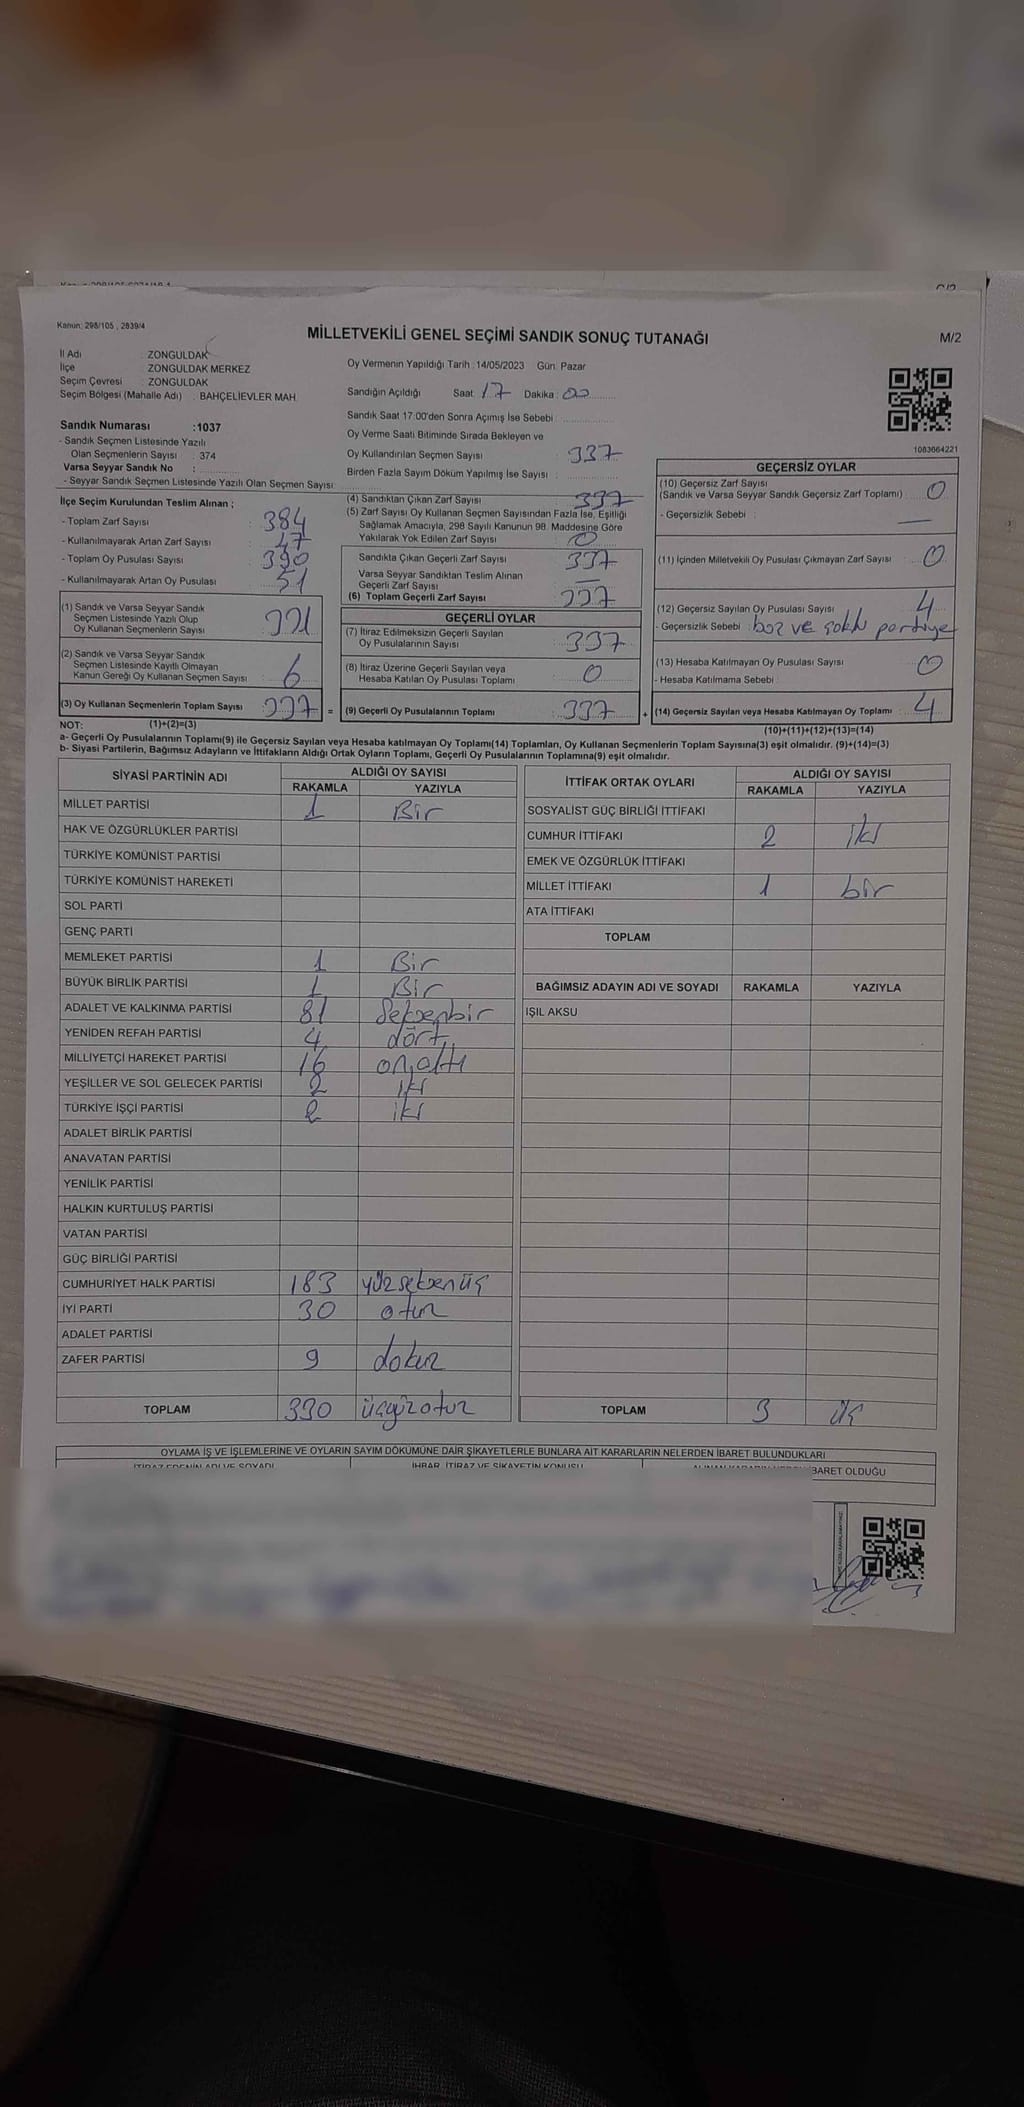 Kanun: 298/105 , 2839/4
MİLLETVEKİLİ GENEL SEÇİMİ SANDIK SONUÇ TUTANAĞI
M/2
İl Adı : ZONGULDAK
İlçe : ZONGULDAK MERKEZ
Seçim Çevresi : ZONGULDAK
Seçim Bölgesi (Mahalle Adı) : BAHÇELİEVLER MAH.
Sandık Numarası :1037
- Sandık Seçmen Listesinde Yazılı
Olan Seçmenlerin Sayısı : 374
Varsa Seyyar Sandık No :
- Seyyar Sandık Seçmen Listesinde Yazılı Olan Seçmen Sayısı :
Oy Vermenin Yapıldığı Tarih : 14/05/2023 Gün: Pazar
Sandığın Açıldığı Saat: 17 Dakika: 00
Sandık Saat 17:00'den Sonra Açımış İse Sebebi :
Oy Verme Saati Bitiminde Sırada Bekleyen ve
Oy Kullandırılan Seçmen Sayısı : 337
Birden Fazla Sayım Döküm Yapılmış İse Sayısı :
1083664221
İlçe Seçim Kurulundan Teslim Alınan ;
- Toplam Zarf Sayısı : 384
- Kullanılmayarak Artan Zarf Sayısı : 47
- Toplam Oy Pusulası Sayısı : 390
- Kullanılmayarak Artan Oy Pusulası : 51
(1) Sandık ve Varsa Seyyar Sandık
Seçmen Listesinde Yazılı Olup
Oy Kullanan Seçmenlerin Sayısı 331
(2) Sandık ve Varsa Seyyar Sandık
Seçmen Listesinde Kayıtlı Olmayan
Kanun Gereği Oy Kullanan Seçmen Sayısı 6
(3) Oy Kullanan Seçmenlerin Toplam Sayısı 337 =
(4) Sandıktan Çıkan Zarf Sayısı 337
(5) Zarf Sayısı Oy Kullanan Seçmen Sayısından Fazla İse, Eşitliği
Sağlamak Amacıyla, 298 Sayılı Kanunun 98. Maddesine Göre
Yakılarak Yok Edilen Zarf Sayısı 0
Sandıkta Çıkan Geçerli Zarf Sayısı 337
Varsa Seyyar Sandıktan Teslim Alınan
Geçerli Zarf Sayısı —
(6) Toplam Geçerli Zarf Sayısı 337
GEÇERLİ OYLAR
(7) İtiraz Edilmeksizin Geçerli Sayılan
Oy Pusulalarının Sayısı 337
(8) İtiraz Üzerine Geçerli Sayılan veya
Hesaba Katılan Oy Pusulası Toplamı 0
(9) Geçerli Oy Pusulalarının Toplamı 337 +
GEÇERSİZ OYLAR
(10) Geçersiz Zarf Sayısı
(Sandık ve Varsa Seyyar Sandık Geçersiz Zarf Toplamı) : 0
- Geçersizlik Sebebi : —
(11) İçinden Milletvekili Oy Pusulası Çıkmayan Zarf Sayısı : 0
(12) Geçersiz Sayılan Oy Pusulası Sayısı : 4
- Geçersizlik Sebebi : boz ve partiye
(13) Hesaba Katılmayan Oy Pusulası Sayısı : 0
- Hesaba Katılmama Sebebi :
(14) Geçersiz Sayılan veya Hesaba Katılmayan Oy Toplamı : 4
NOT: (1)+(2)=(3)
(10)+(11)+(12)+(13)=(14)
a- Geçerli Oy Pusulalarının Toplamı(9) ile Geçersiz Sayılan veya Hesaba katılmayan Oy Toplamı(14) Toplamları, Oy Kullanan Seçmenlerin Toplam Sayısına(3) eşit olmalıdır. (9)+(14)=(3)
b- Siyasi Partilerin, Bağımsız Adayların ve İttifakların Aldığı Ortak Oyların Toplamı, Geçerli Oy Pusulalarının Toplamına(9) eşit olmalıdır.
SİYASİ PARTİNİN ADI
ALDIĞI OY SAYISI
RAKAMLA YAZIYLA
MİLLET PARTİSİ 1 Bir
HAK VE ÖZGÜRLÜKLER PARTİSİ
TÜRKİYE KOMÜNİST PARTİSİ
TÜRKİYE KOMÜNİST HAREKETİ
SOL PARTİ
GENÇ PARTİ
MEMLEKET PARTİSİ 1 Bir
BÜYÜK BİRLİK PARTİSİ 1 Bir
ADALET VE KALKINMA PARTİSİ 81 Seksenbir
YENİDEN REFAH PARTİSİ 4 dört
MİLLİYETÇİ HAREKET PARTİSİ 16 onaltı
YEŞİLLER VE SOL GELECEK PARTİSİ 2 iki
TÜRKİYE İŞÇİ PARTİSİ 2 iki
ADALET BİRLİK PARTİSİ
ANAVATAN PARTİSİ
YENİLİK PARTİSİ
HALKIN KURTULUŞ PARTİSİ
VATAN PARTİSİ
GÜÇ BİRLİĞİ PARTİSİ
CUMHURİYET HALK PARTİSİ 183 yüzseksenüç
İYİ PARTİ 30 otuz
ADALET PARTİSİ
ZAFER PARTİSİ 9 dokuz
TOPLAM 330 üçyüzotuz
İTTİFAK ORTAK OYLARI
ALDIĞI OY SAYISI
RAKAMLA YAZIYLA
SOSYALİST GÜÇ BİRLİĞİ İTTİFAKI
CUMHUR İTTİFAKI 2 iki
EMEK VE ÖZGÜRLÜK İTTİFAKI
MİLLET İTTİFAKI 1 bir
ATA İTTİFAKI
TOPLAM
BAĞIMSIZ ADAYIN ADI VE SOYADI RAKAMLA YAZIYLA
IŞIL AKSU
TOPLAM 3 üç
OYLAMA İŞ VE İŞLEMLERİNE VE OYLARIN SAYIM DÖKÜMÜNE DAİR ŞİKAYETLERLE BUNLARA AİT KARARLARIN NELERDEN İBARET BULUNDUKLARI
İTİRAZ EDENİN ADI VE SOYADI İHBAR, İTİRAZ VE ŞİKAYETİN KONUSU İBARET OLDUĞU